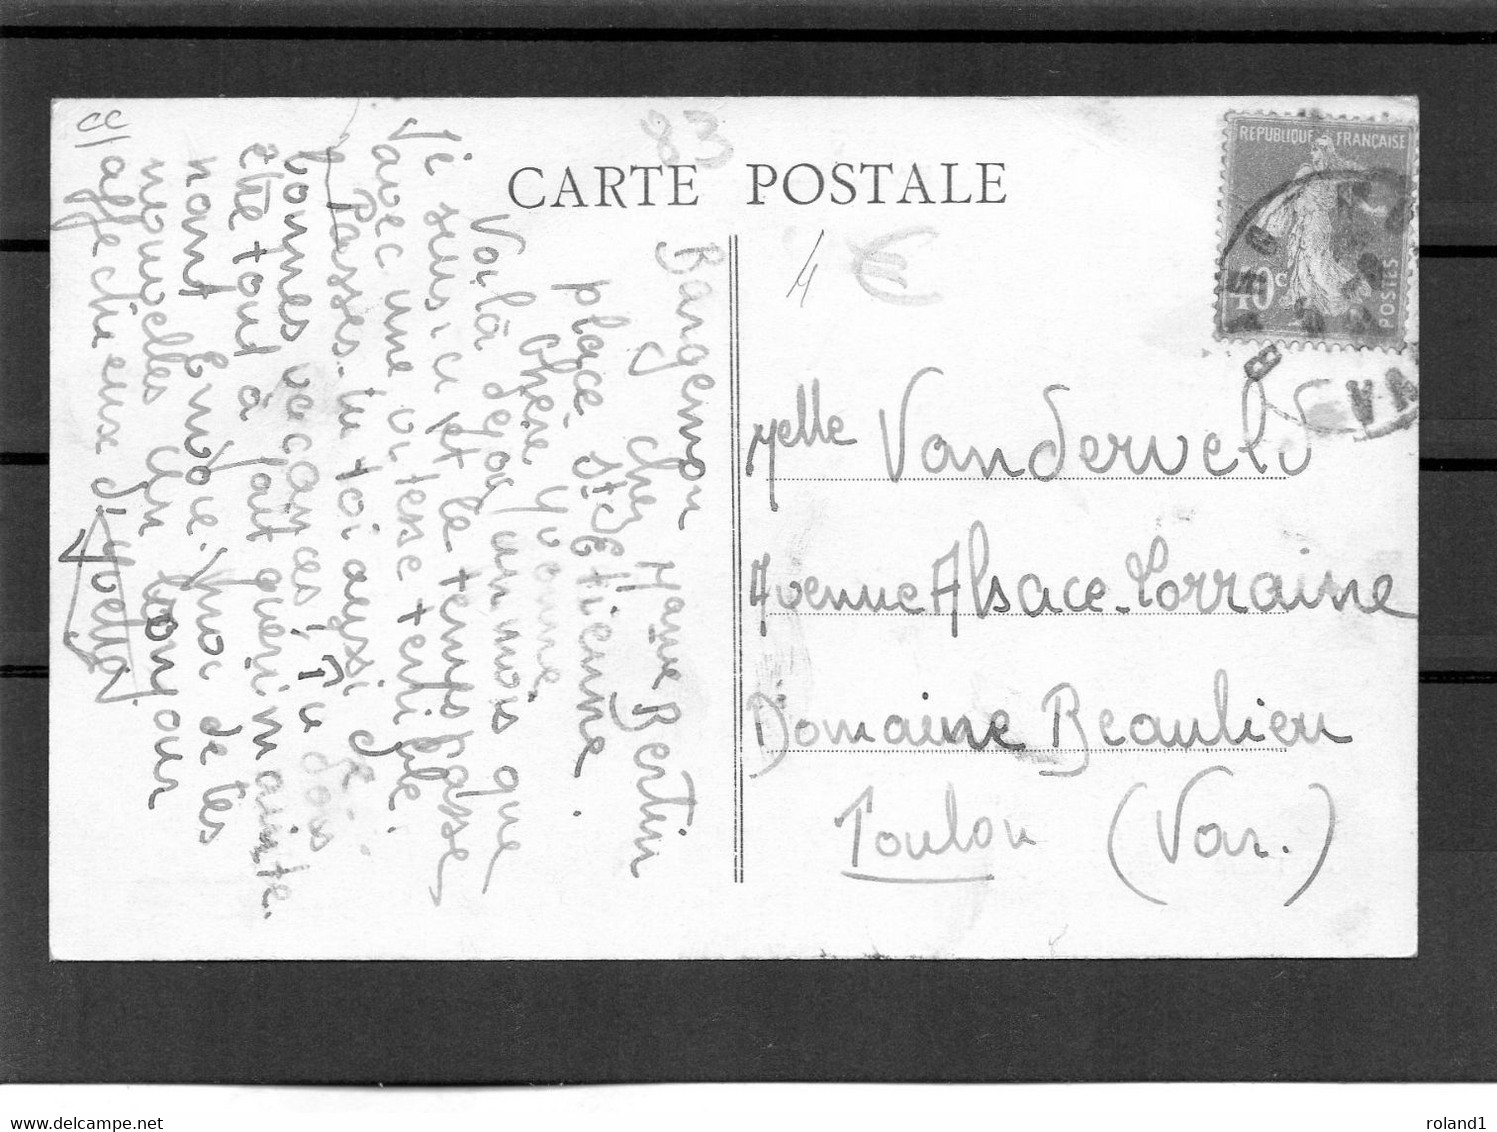 83
CARTE POSTALE
REPUBLIQUE FRANÇAISE
40c
POSTES
VAR
4 €
Melle Vanderveld
Avenue Alsace-Lorraine
Domaine Beaulieu
Toulon (Var.)
Bargemon
chez Mame Bertin
place St Etienne.
Chère Yvonne
Voilà déjà un mois que
je suis ici et le temps passe
avec une vitesse terrible.
Passes-tu toi aussi de
bonnes vacances, Tu dois
être tout à fait guéri mainte
nant Envoie moi de tes
nouvelles Un bonjour
affectueuse
Yvette
www.delcampe.net
roland1